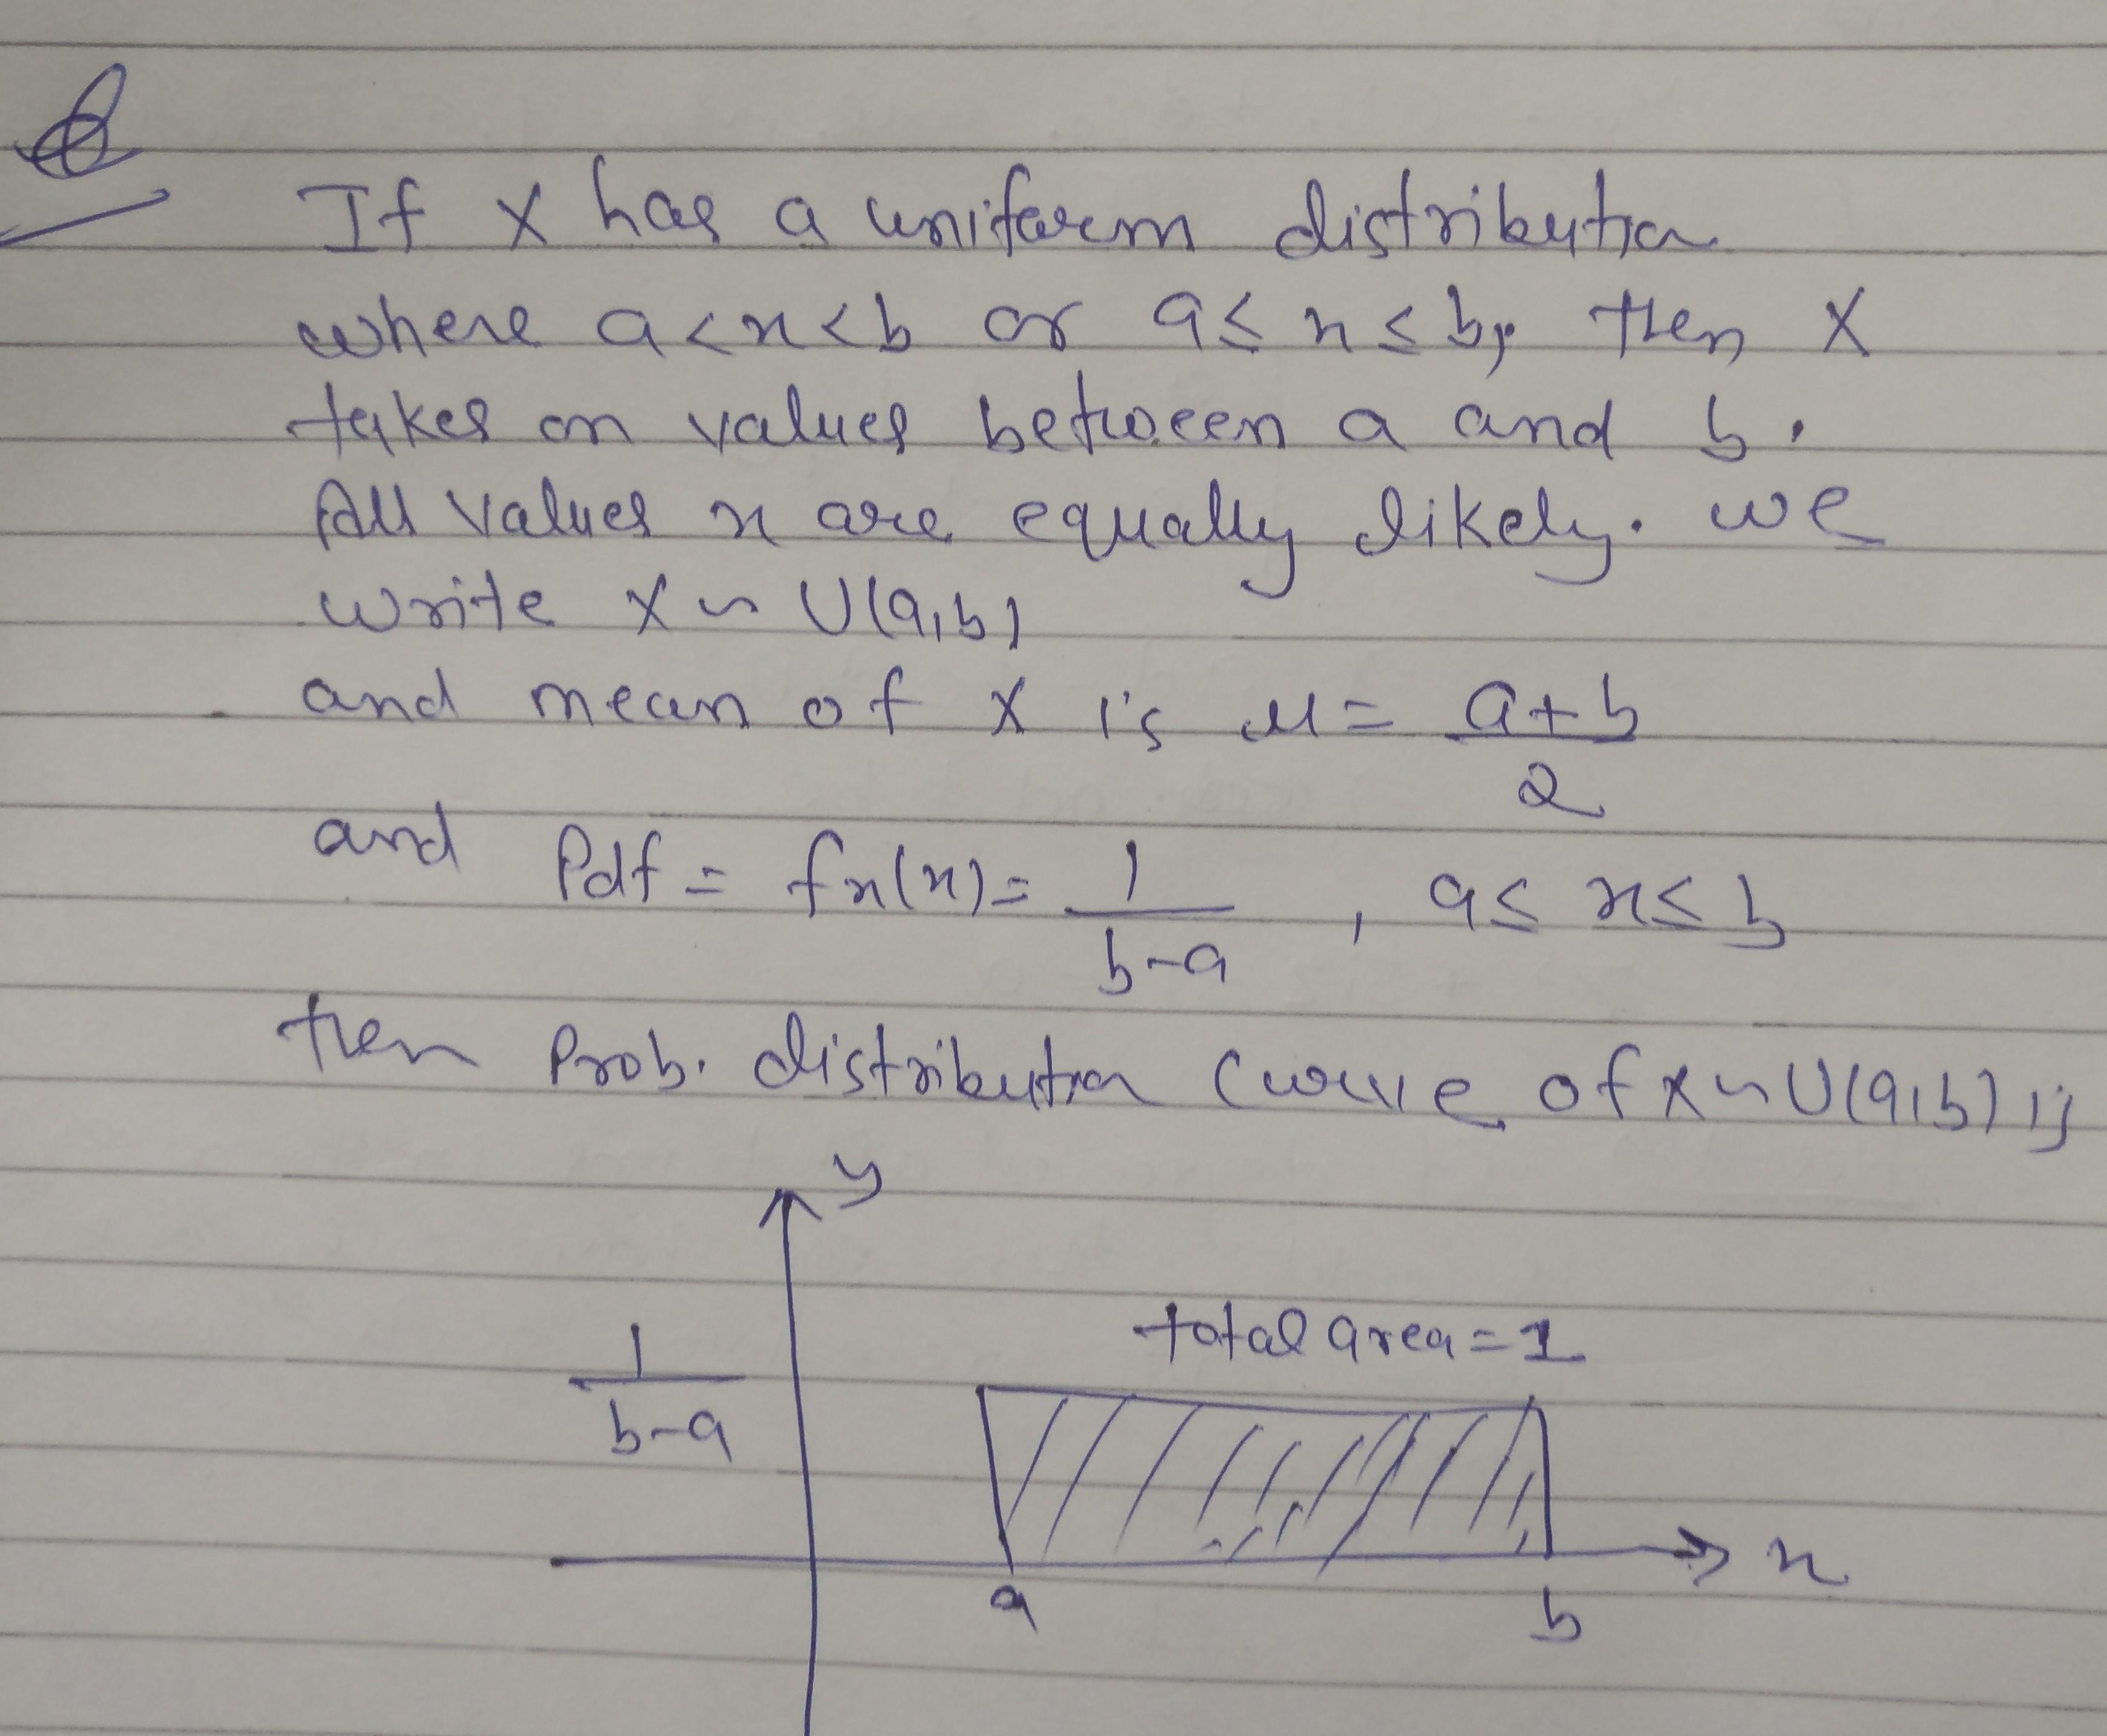 Q
If X has a uniform distribution
where a<x<b or a≤x≤b, then X
takes on values between a and b.
All values x are equally likely. we
write X ~ U(a,b)
and mean of X is μ = a+b
2
and Pdf = fx(x) = 1/(b-a) , a≤x≤b
then Prob. distribution curve of X ~ U(a,b) is
y
total area = 1
1/(b-a)
a b x